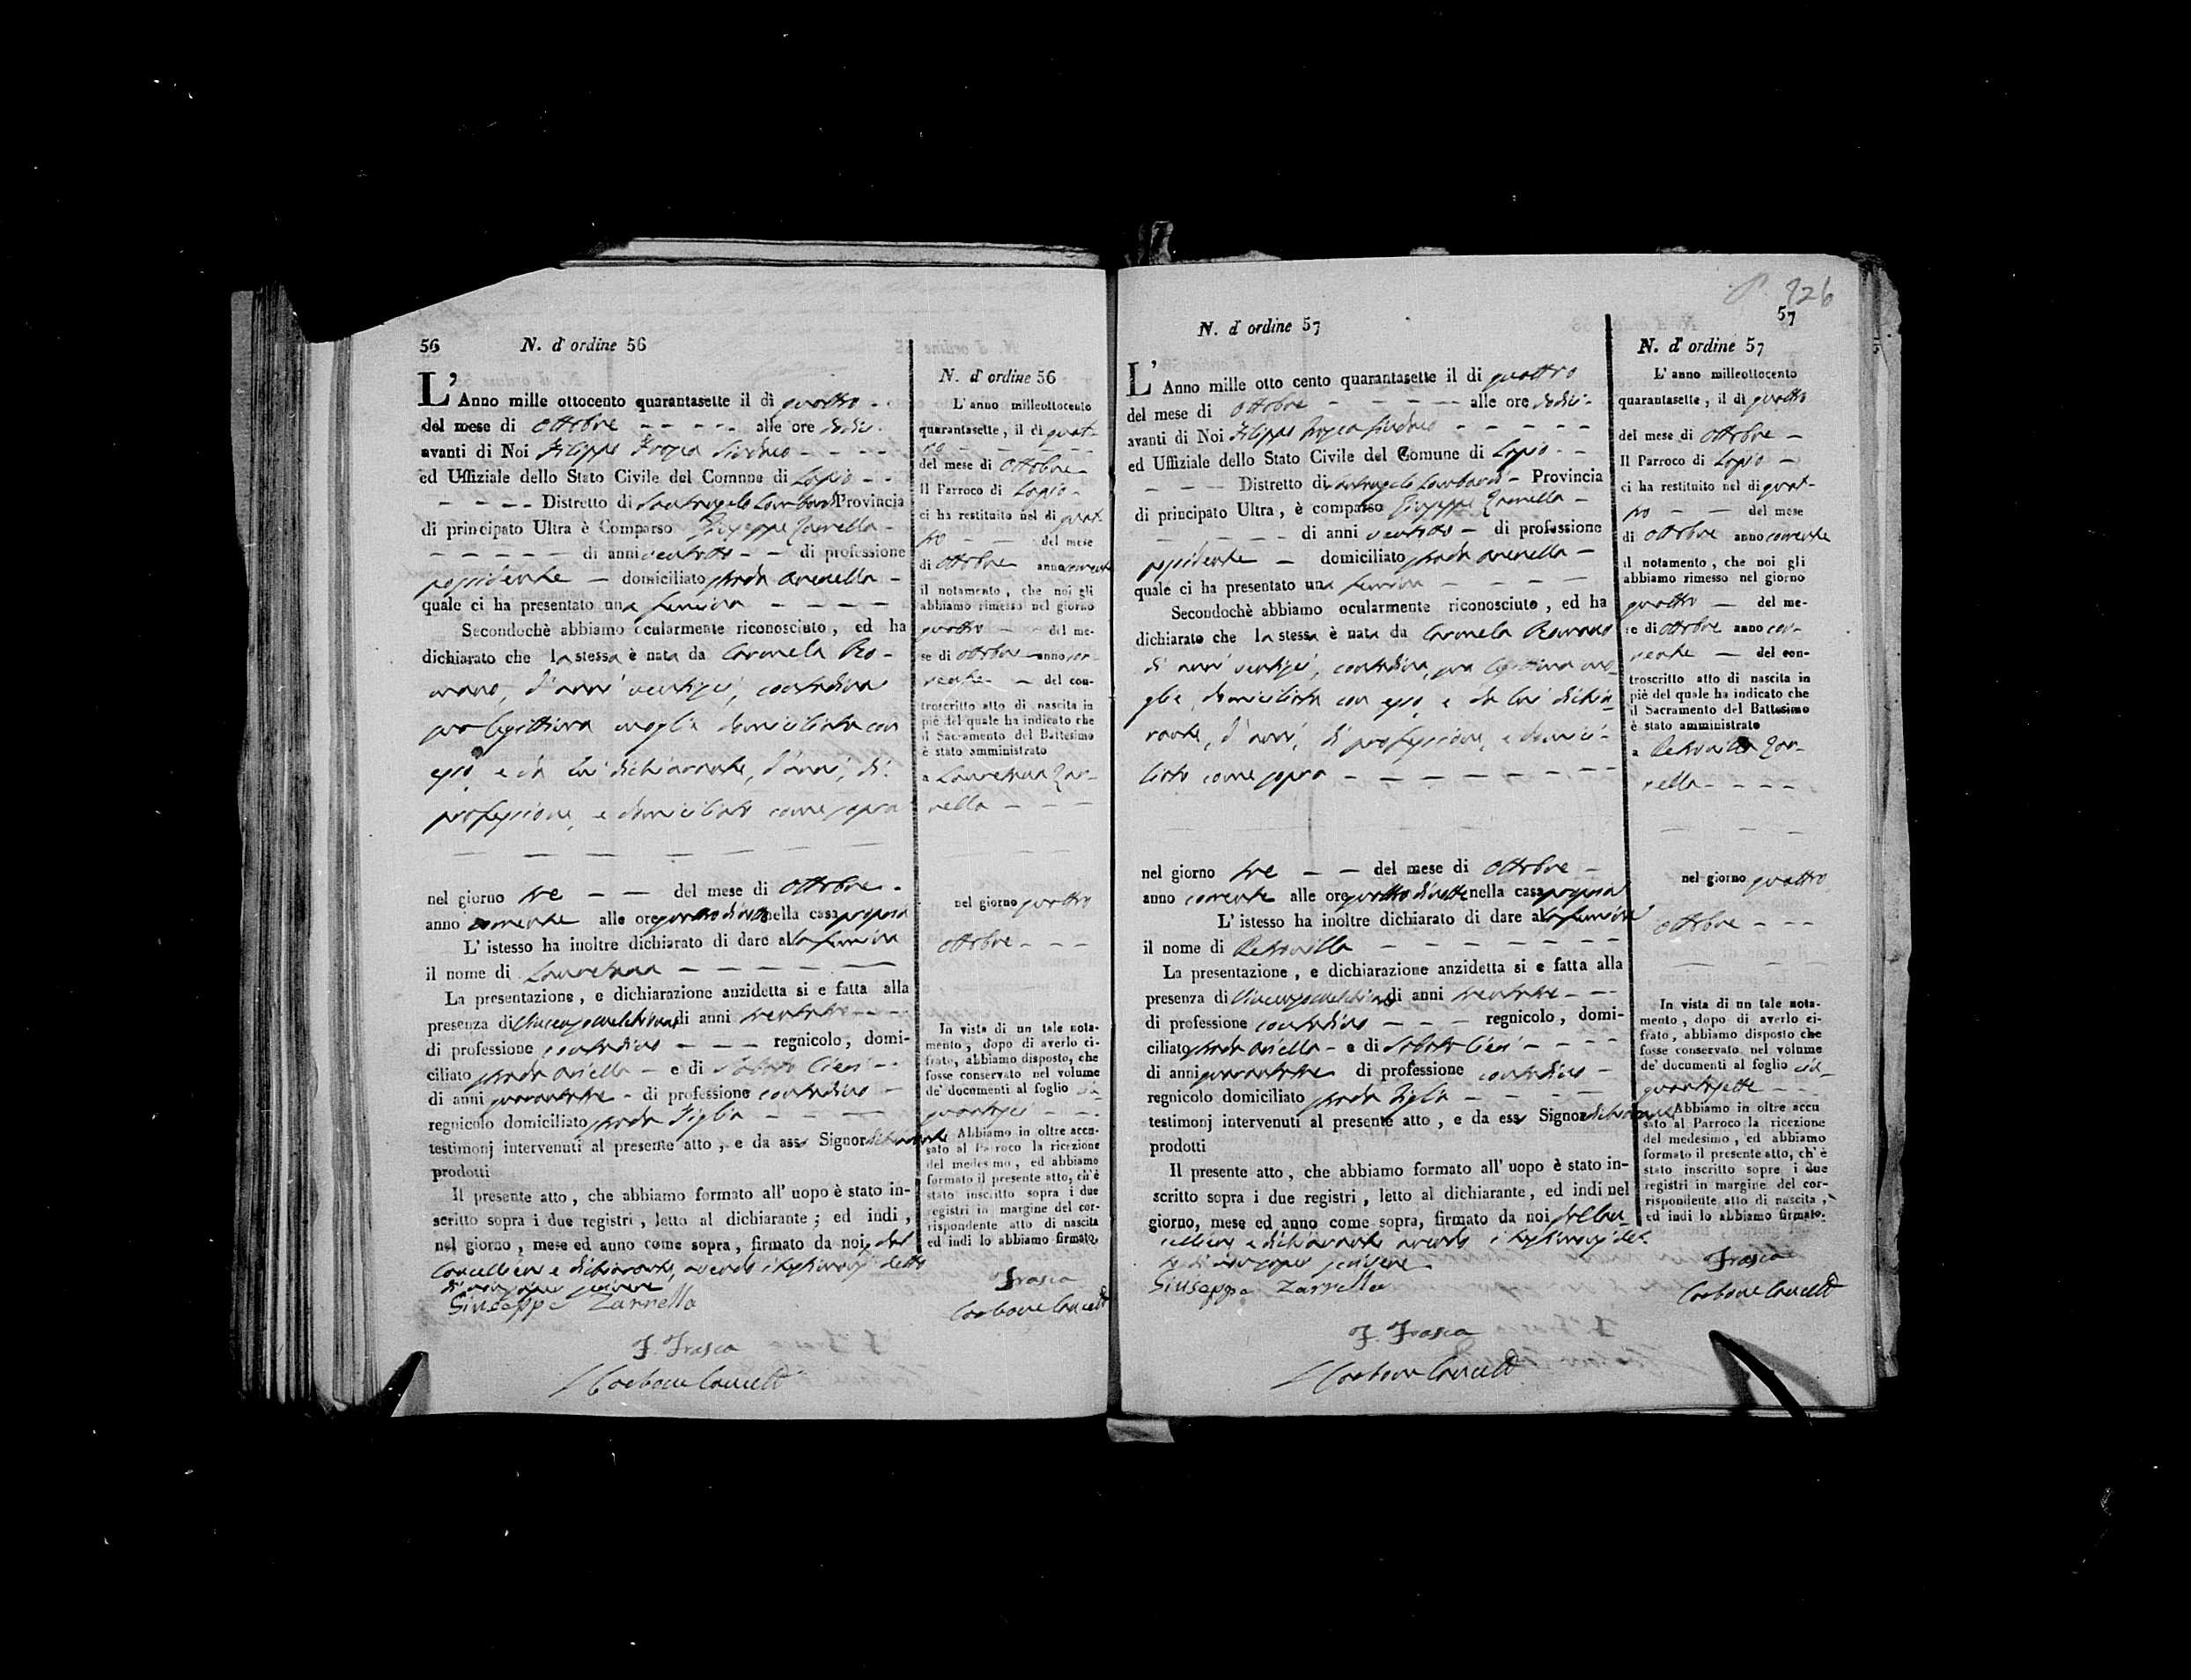 56 N. d' ordine 56
L' Anno mille ottocento quarantasette il di quattro -
del mese di Ottobre - - - - - alle ore dodici -
avanti di Noi Filippo Frasca Sindaco - - - -
ed Uffiziale dello Stato Civile del Comune di Lapio - -
- - - - Distretto di Santangelo Lombardi Provincia
di principato Ultra è Comparso Giuseppe Zarrella -
- - - - - di anni ventotto - - di professione
possidente - domiciliato strada Arenella -
quale ci ha presentato una femina - - - -
Secondochè abbiamo ocularmente riconosciuto, ed ha
dichiarato che la stessa è nata da Carmela Ro-
mano, d'anni ventisei, contadina
sua legittima moglie domiciliata con
esso, e da lui dichiarante, d'anni, di
professione, e domiciliato come sopra
nel giorno tre - - del mese di Ottobre -
anno corrente alle ore quattro di notte nella casa propria
L' istesso ha inoltre dichiarato di dare alla femina
il nome di - - - - - -
La presentazione, e dichiarazione anzidetta si e fatta alla
presenza di Vincenzo di anni trentatre - - -
di professione contadino - - - regnicolo, domi-
ciliato strada - e di Sabato - -
di anni quarantatre - di professione contadino -
regnicolo domiciliato strada - - - -
testimonj intervenuti al presente atto, e da assi Signor dichiarante
prodotti
Il presente atto, che abbiamo formato all' uopo è stato in-
scritto sopra i due registri, letto al dichiarante; ed indi,
nel giorno, mese ed anno come sopra, firmato da noi, dal
Cancelliere e dichiarante, avendo i testimonj detto
di non saper scrivere
Giuseppe Zarrella
F. Frasca
Carbone Cancell
N. d' ordine 56
L' anno milleottocento
quarantasette, il di quat-
tro - - - -
del mese di Ottobre -
Il Parroco di Lapio -
ci ha restituito nel di quat-
tro - - del mese
di Ottobre anno corrente
il notamento, che noi gli
abbiamo rimesso nel giorno
quattro - - del me-
se di Ottobre - anno cor-
rente - - del con-
troscritto atto di nascita in
piè del quale ha indicato che
il Sacramento del Battesimo
è stato amministrato
a Zar-
rella - - -
nel giorno quattro
Ottobre - - -
In vista di un tale nota-
mento, dopo di averlo ci-
frato, abbiamo disposto, che
fosse conservato nel volume
de' documenti al foglio cin-
quantasei - - -
Abbiamo in oltre accu-
sato al Parroco la ricezione
del medesimo, ed abbiamo
formato il presente atto, ch'è
stato inscritto sopra i due
registri in margine del cor-
rispondente atto di nascita
ed indi lo abbiamo firmato.
Frasca
Carbone Cancell
57
N. d' ordine 57
L' Anno mille otto cento quarantasette il di quattro
del mese di Ottobre - - - - - alle ore dodici -
avanti di Noi Filippo Frasca Sindaco - - - - -
ed Uffiziale dello Stato Civile del Comune di Lapio - -
- - - Distretto di Santangelo Lombardi - Provincia
di principato Ultra, è comparso Giuseppe Zarrella -
- - - - - di anni ventotto - di professione
possidente - domiciliato strada Arenella -
quale ci ha presentato una femina - - - -
Secondochè abbiamo ocularmente riconosciuto, ed ha
dichiarato che la stessa è nata da Carmela Romano
di anni ventisei, contadina, sua legittima mo-
glie, domiciliata con esso, e da lui dichia-
rante, d'anni, di professione, e domici-
liato come sopra - - - - - - - -
nel giorno tre - - del mese di Ottobre -
anno corrente alle ore quattro di notte nella casa propria
L' istesso ha inoltre dichiarato di dare alla femina
il nome di Petronilla - - - - - - - -
La presentazione, e dichiarazione anzidetta si e fatta alla
presenza di Vincenzo di anni trentatre - - -
di professione contadino - - - regnicolo, domi-
ciliato strada - e di Sabato - - - -
di anni quarantatre di professione contadino -
regnicolo domiciliato strada - - - - -
testimonj intervenuti al presente atto, e da essi Signor dichiarante
prodotti
Il presente atto, che abbiamo formato all' uopo è stato in-
scritto sopra i due registri, letto al dichiarante, ed indi nel
giorno, mese ed anno come sopra, firmato da noi, dal Can-
celliere e dichiarante avendo i testimonj det-
to di non saper scrivere
Giuseppe Zarrella
F. Frasca
Carbone Cancell
N. d' ordine 57
L' anno milleottocento
quarantasette, il di quattro
del mese di Ottobre -
Il Parroco di Lapio -
ci ha restituito nel di quat-
tro - - del mese
di Ottobre anno corrente
il notamento, che noi gli
abbiamo rimesso nel giorno
quattro - del me-
se di Ottobre anno cor-
rente - del con-
troscritto atto di nascita in
piè del quale ha indicato che
il Sacramento del Battesimo
è stato amministrato
a Petronilla Zar-
rella - - - -
nel giorno quattro
Ottobre - - -
In vista di un tale nota-
mento, dopo di averlo ci-
frato, abbiamo disposto che
fosse conservato nel volume
de' documenti al foglio cin-
quantasette - -
Abbiamo in oltre accu
sato al Parroco la ricezione
del medesimo, ed abbiamo
formato il presente atto, ch' è
stato inscritto sopre i due
registri in margine del cor-
rispondente atto di nascita,
ed indi lo abbiamo firmato.
Frasca
Carbone Cancell